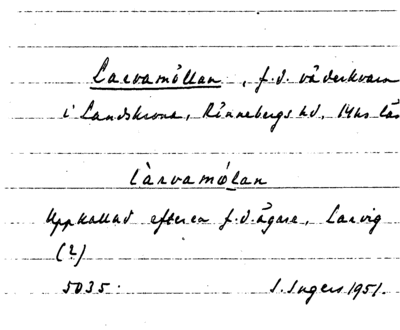 Larvamöllan, f.d. väderkvarn
i Landskrona, Rönnebergs hd, Mhs län
làrvamø̱lan
Uppkallad efter en f.d. ägare, Larvig
(?)
5035. I. Ingers 1951.